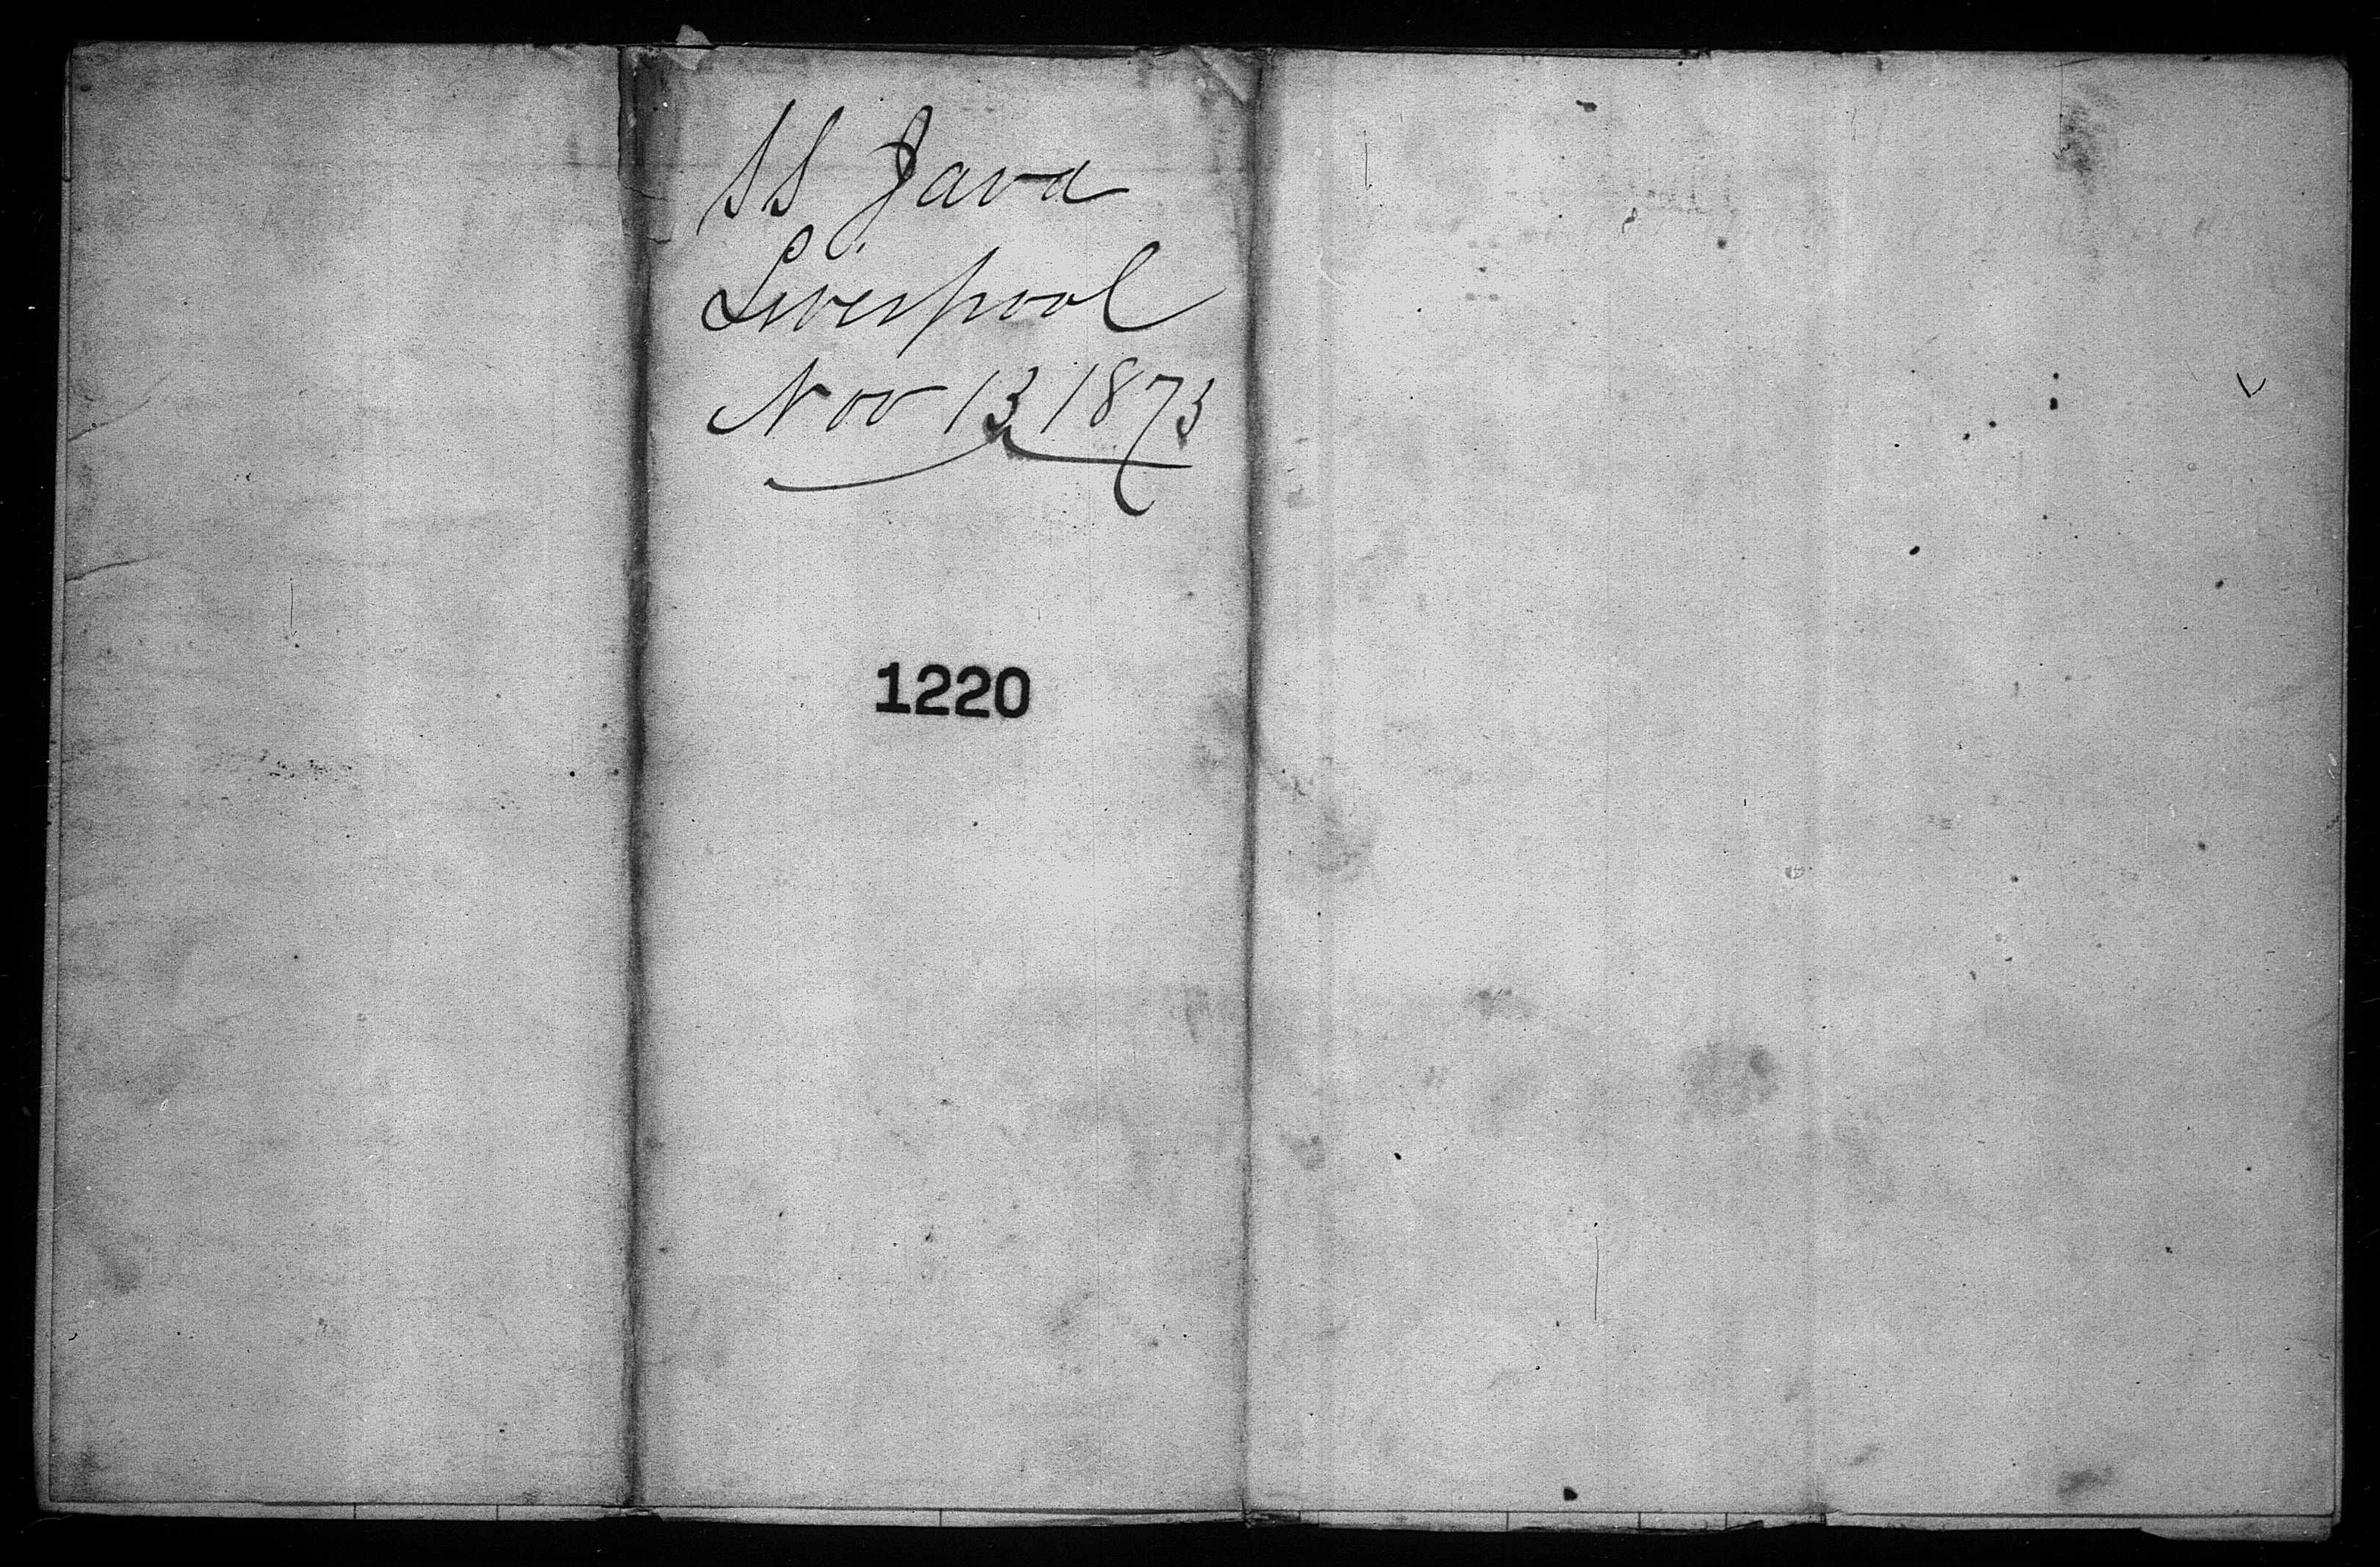 SS Java
Liverpool
Nov 13 1873
1220